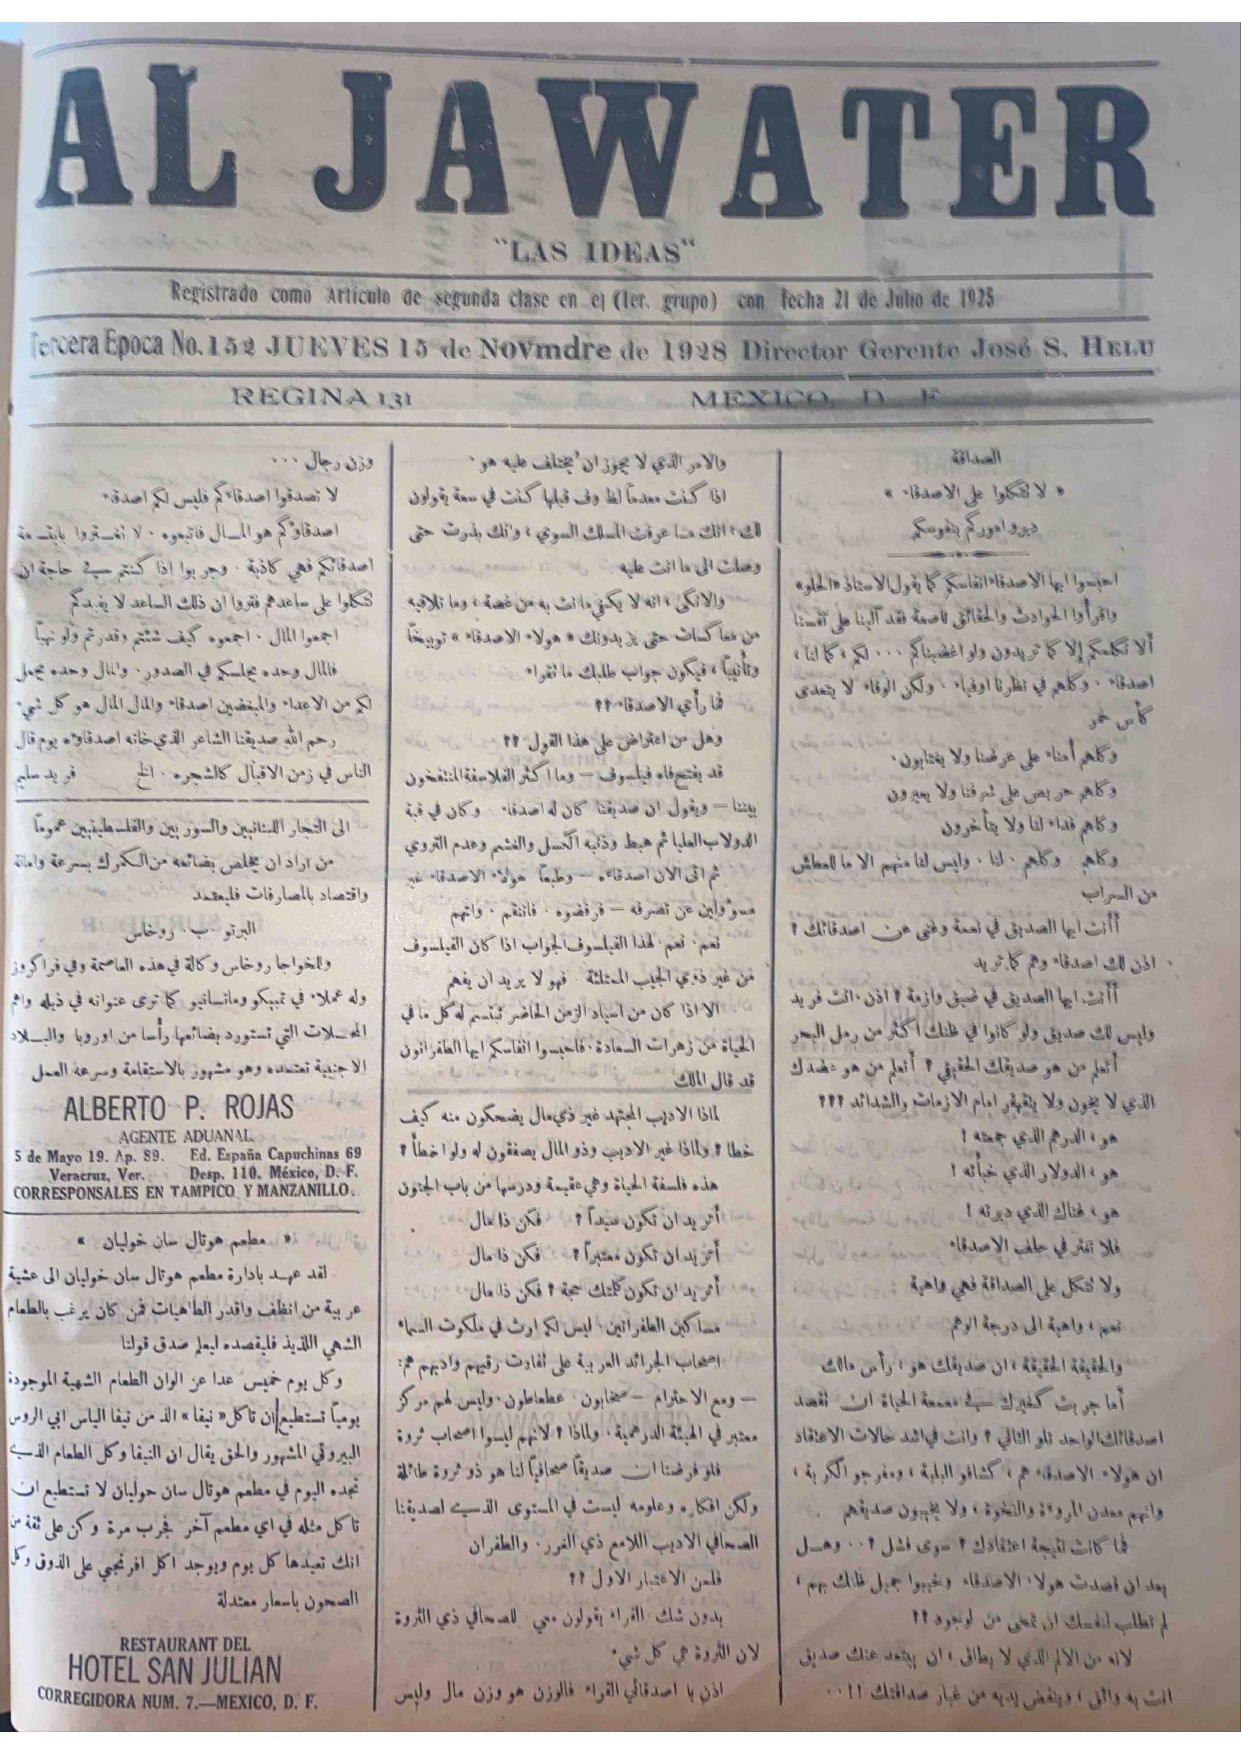 AL JAWATER
"LAS IDEAS"
Registrado como Artículo de segunda clase en el (1er. grupo) con fecha 21 de Julio de 1925
Tercera Epoca No. 152 JUEVES 15 de Novmdre de 1928 Director Gerente José S. HELU
REGINA 131 MEXICO, D. F.
الصداقة
« لا تتكلوا على الاصدقاء »
دبروا موركم بنفوسكم
احبسوا ايها الاصدقاء انفاسكم كما يقول الاستاذ «الحلو»
واقرأوا الحوادث والحقائق ناصعة فقد آلينا على نفسنا
ألا نكلمكم إلا كما تريدون ولو اغضبناكم ... لكم ، كما لنا ،
اصدقاء . وكلهم في نظرنا اوفياء . ولكن الوفاء لا يتعدى
كأس خمر
وكلهم أمناء على عرضنا ولا يغتابون .
وكلهم حريص على شرفنا ولا يعيرون
وكلهم فداء لنا ولا يتأخرون
وكلهم وكلهم . لنا . وليس لنا منهم الا ما للعطاش
من السراب
أأنت ايها الصديق في نعمة وغنى عن اصدقائك ؟
اذن لك اصدقاء وهم كما تريد .
أأنت ايها الصديق في ضيق وازمة ؟ اذن . انت فريد
وليس لك صديق ولو كانوا في ظنك أكثر من رمل البحر
أتعلم من هو صديقك الحقيقي ؟ أتعلم من هو عضدك
الذي لا يخون ولا يتقهقر امام الازمات والشدائد ؟؟؟
هو ، الدرهم الذي جمعته !
هو ، الدولار الذي خبأته !
هو ، فناك الذي دبرته !
فلا تغتر في حلف الاصدقاء
ولا تتكل على الصداقة فهي واهية
نعم ، واهية الى درجة الوهم
والحقيقة الحقيقة ، ان صديقك هو ، رأس مالك
أما جربت كغيرك في معمعة الحياة ان تقصد
اصدقائك الواحد تلو التالي ؟ وانت في اشد حالات الاعتقاد
ان هولاء الاصدقاء هم ، كشافو البلية ، ومفرجو الكربة ،
وانهم معدن المروءة والنخوة ، ولا يخيبون صديقهم
فما كانت نتيجة اعتقادك ؟ سوى فشل ؟ .. وهل
بعد ان قصدت هولاء الاصدقاء وخيبوا جميل ظنك بهم ،
لم تطلب لنفسك ان تمحى من لوجود ؟؟
لانه من الالم الذي لا يطاق ، ان يبتعد عنك صديق
انت به واثق ، وينفض يديه من غبار صداقتك !! ..
والامر الذي لا يجوز ان يختلف عليه هو .
اذا كنت معدماً لظروف قبلها كنت في سعة يقولون
لك ، انك ما عرفت المسلك السوي ، وانك بذرت حتى
وصلت الى ما انت عليه
والانكى ، انه لا يكفي ما نت به من غصة ، وما تلاقيه
من معاكسات حتى يزيدونك « هولاء الاصدقاء » توبيخاً
وتأنيباً ، فيكون جواب طلبك ما تقراء
فما رأي الاصدقاء ؟؟
وهل من اعتراض على هذا القول ؟؟
قد يفتح فاه فيلسوف — وما اكثر الفلاسفة المنتفخون
بيننا — ويقول ان صديقنا كان له اصدقاء . وكان في قبة
الدولاب العليا ثم هبط وذنبه الكسل والغشم وعدم التروي
ثم اتى الان اصدقاءه — وطبعاً هولاء الاصدقاء غير
مسوؤلين عن تصرفه — فرفضوه . فانتقم . واتهم
نعم . نعم . لهذا الفيلسوف الجواب اذا كان الفيلسوف
من غير ذوي الجيب الممتلئة . فهو لا يريد ان يفهم
الا اذا كان من اسياد الزمن الحاضر تبتسم له كل ما في
الحياة من زهرات السعادة . فاحبسوا انفاسكم ايها الطفرانون
قد قال الملك
لماذا الاديب المجتهد غير ذي مال يضحكون منه كيف
خطا ؟ ولماذا غير الاديب وذو المال يصفقون له ولو اخطأ ؟
هذه فلسفة الحياة وهي عقيمة ودرسها من باب الجنون
أتريد ان تكون سيداً ؟ فكن ذا مال
أتريد ان تكون معتبراً ؟ فكن ذا مال
أتريد ان تكون كلمتك حجة ؟ فكن ذا مال
مساكين الطفرانين . ليس لكم ارث في ملكوت السماء
اصحاب الجرائد العربية على تفاوت رقيهم وادبهم هم :
— ومع الاحترام — صخابون ، عطعاطون . وليس لهم مركز
معتبر في الهيئة الدرهمية . ولماذا ؟ لانهم ليسوا اصحاب ثروة
فلو فرضنا ان صديقاً صحافياً لنا هو ذو ثروة طائلة
ولكن افكاره وعلومه ليست في المستوى الذي لصديقنا
الصحافي الاديب اللامع ذي الغرر . والطفران
فلمن الاعتبار الاول ؟؟
بدون شك . القراء يقولون معي . للصحافي ذي الثروة
لان الثروة هي كل شيء
اذن يا اصدقائي القراء فالوزن هو وزن مال وليس
وزن رجال ...
لا تصدقوا اصدقاءكم فليس لكم اصدقاء
اصدقاؤكم هو المال فاتبعوه . لا تغتروا بابتسامة
اصدقائكم فهي كاذبة . وجربوا اذا كنتم في حاجة ان
تتكلوا على ساعدهم فتروا ان ذلك الساعد لا يفيدكم
اجمعوا المال . اجمعوه كيف شئتم وقدرتم ولو نهباً
فالمال وحده يجلسكم في الصدور . والمال وحده يجعل
لكم من الاعداء والمبغضين اصدقاء والمال المال هو كل شيء
رحم الله صديقنا الشاعر الذي خانه اصدقاؤه يوم قال
الناس في زمن الاقبال كالشجره . الخ فريد سليم
الى التجار اللبنانيين والسوريين والفلسطينيين عموماً
من اراد ان يخلص بضائعه من الكمرك بسرعة وامانة
واقتصاد بالمصارفات فليعتمد
البرتو . ب . روخاس
وللخواجا روخاس وكالة في هذه العاصمة وفي فراكروز
وله عملاء في تمبيكو ومانسانيو كما ترى عنوانه في ذيله واهم
المحلات التي تستورد بضائعها رأساً من اوروبا والبلاد
الاجنبية تعتمده وهو مشهور بالاستقامة وسرعة العمل
ALBERTO P. ROJAS
AGENTE ADUANAL
5 de Mayo 19. Ap. 89. Ed. España Capuchinas 69
Veracruz, Ver. Desp. 110. México, D. F.
CORRESPONSALES EN TAMPICO Y MANZANILLO.
« مطعم هوتال سان خوليان »
لقد عهد بادارة مطعم هوتال سان خوليان الى عشية
عربية من انظف واقدر الطاهيات فمن كان يرغب بالطعام
الشهي اللذيذ فليقصده ليعلم صدق قولنا
وكل يوم خميس عدا عن الوان الطعام الشهية الموجودة
يومياً تستطيع ان تاكل « نيفا » الذ من نيفا الياس ابي الروس
البيروتي المشهور والحق يقال ان النيفا وكل الطعام الذي
تجده اليوم في مطعم هوتال سان حوليان لا تستطيع ان
تاكل مثله في اي مطعم آخر فجرب مرة وكن على ثقة من
انك تعيدها كل يوم ويوجد اكل افرنجي على الذوق وكل
الصحون باسعار معتدلة
RESTAURANT DEL
HOTEL SAN JULIAN
CORREGIDORA NUM. 7.—MEXICO, D. F.